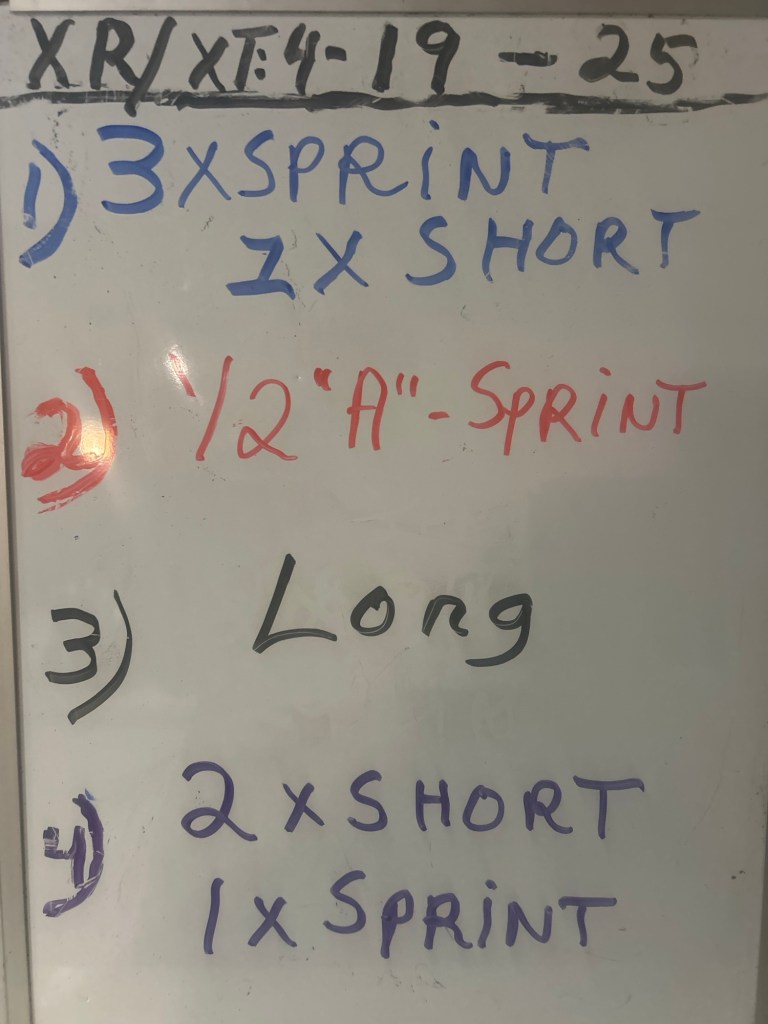 XR/XT: 4-19-25
1) 3XSPRiNT
1X SHORT
2) 1/2 "A"-SPRINT
3) Long
4) 2XSHORT
1X SPRiNT